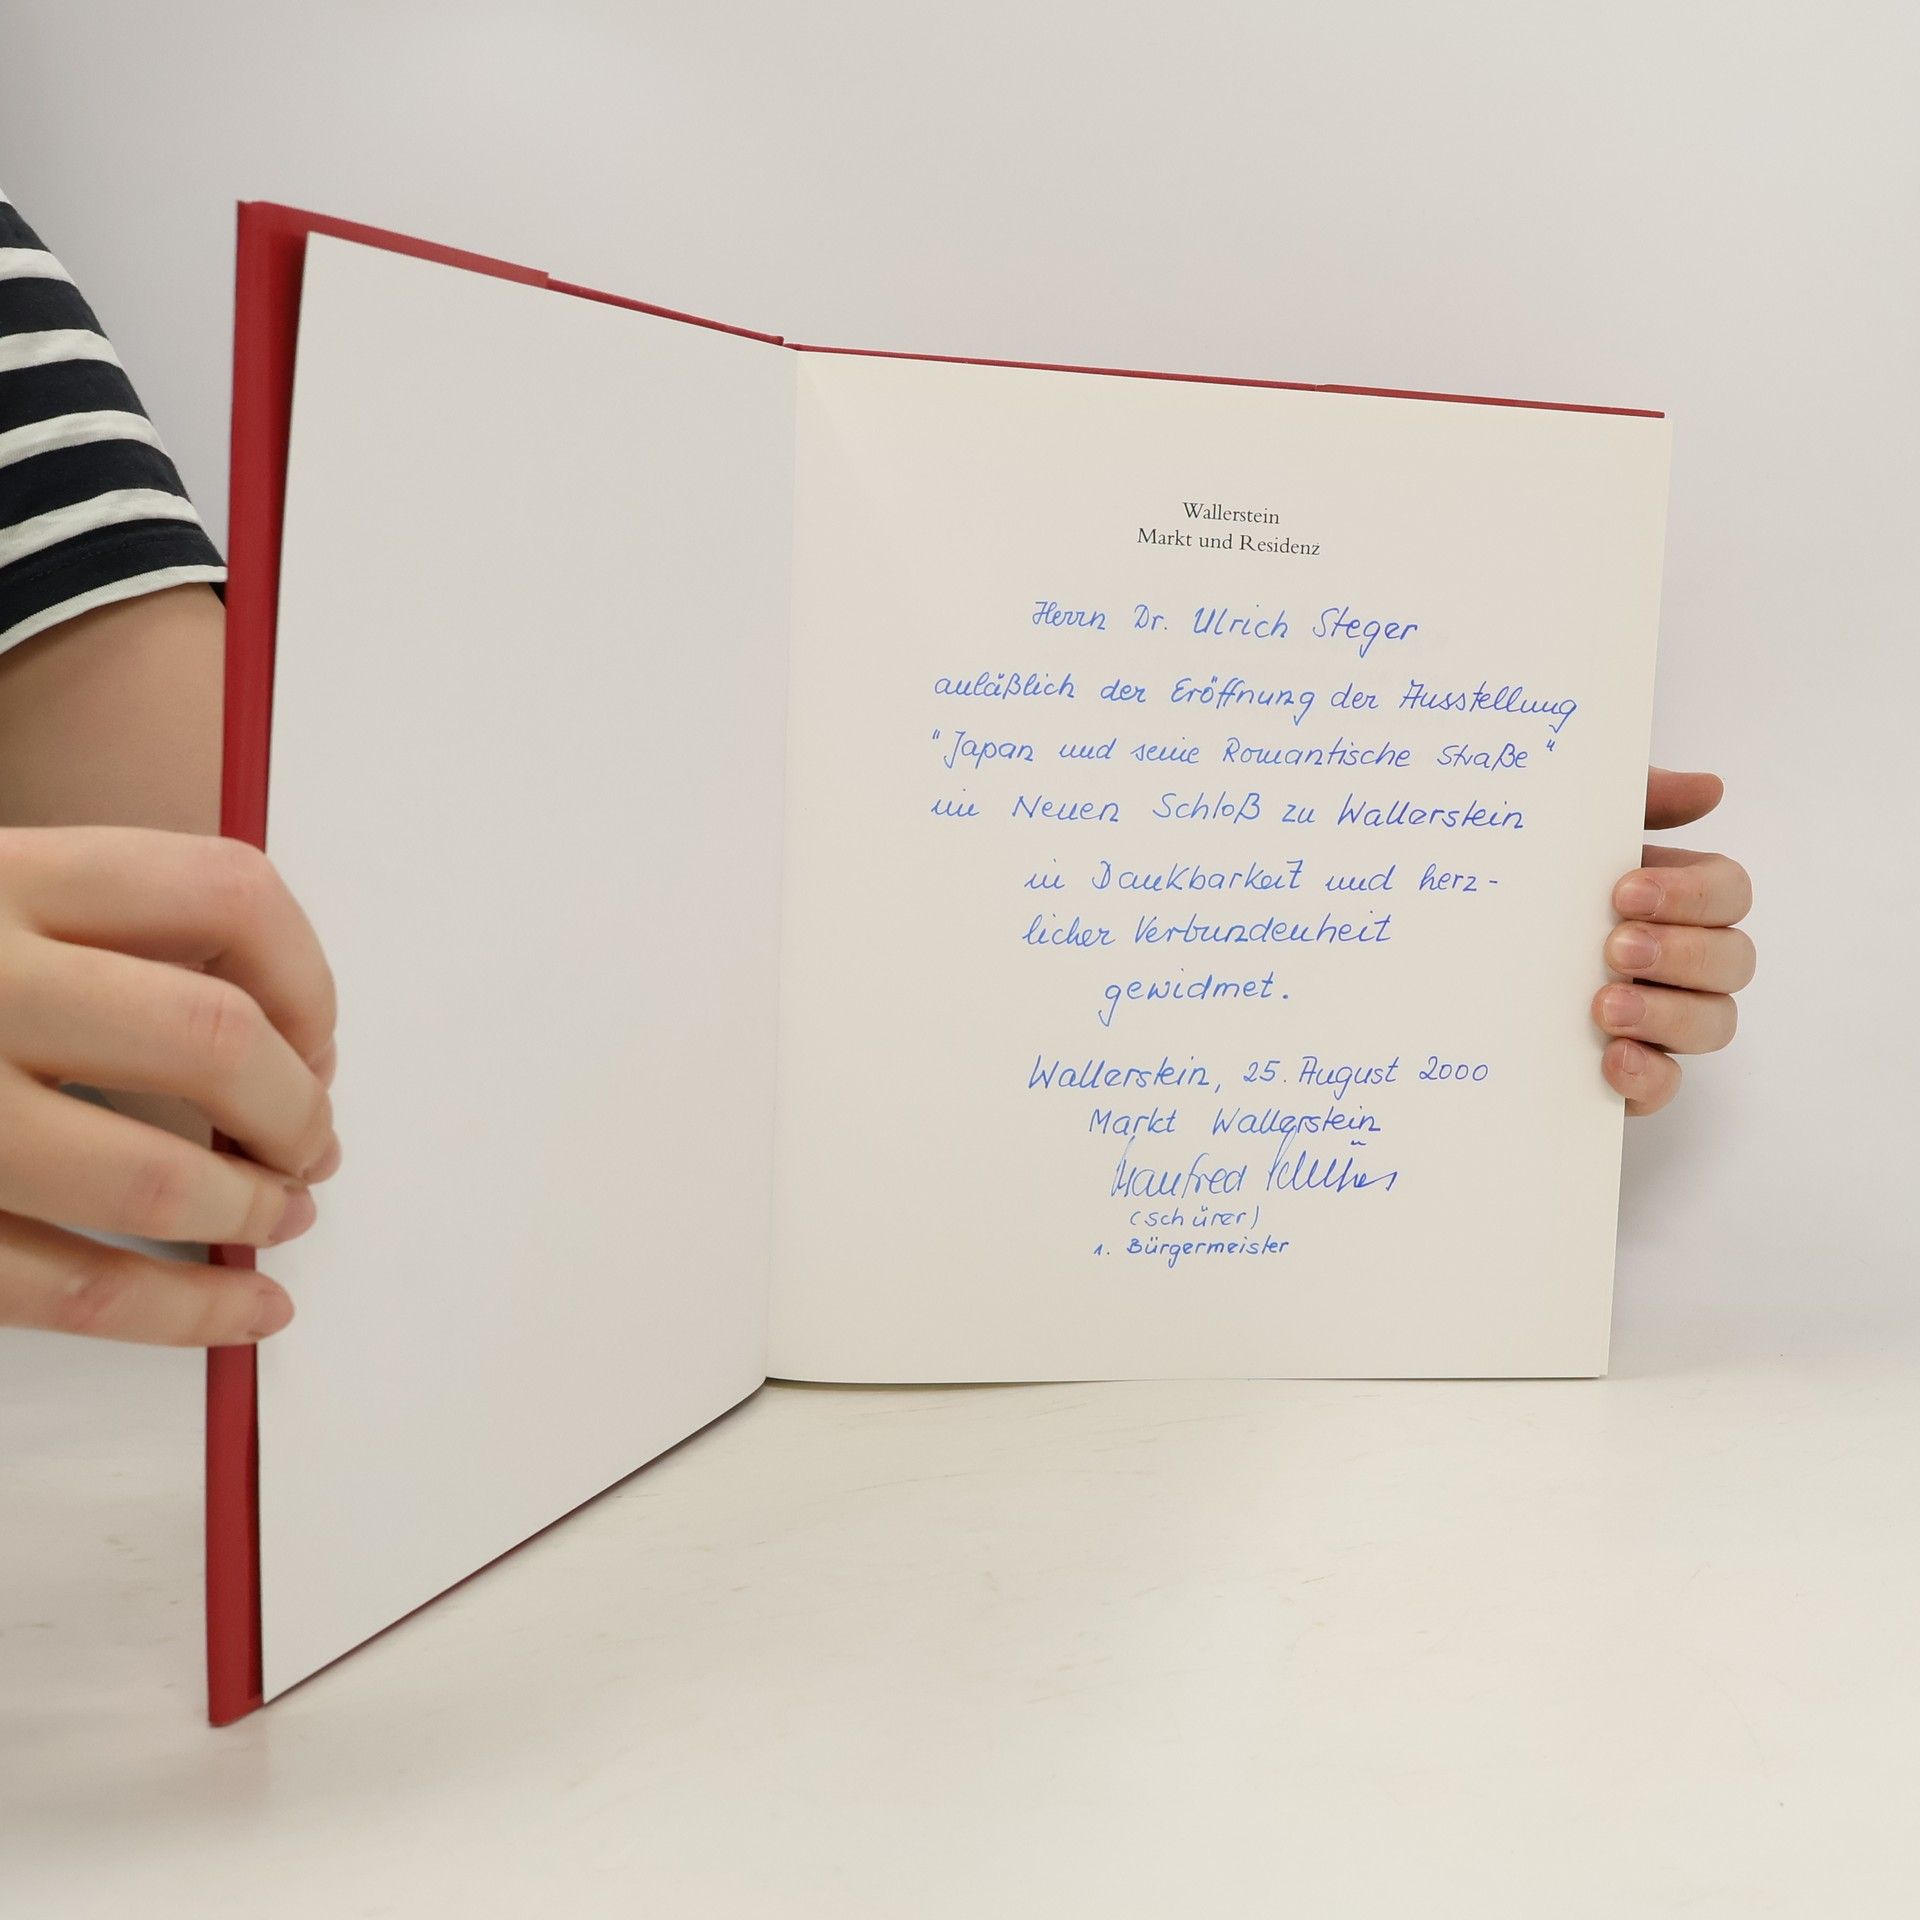 Wallerstein
Markt und Residenz
Herrn Dr. Ulrich Steger
anläßlich der Eröffnung der Ausstellung
"Japan und seine Romantische Straße"
im Neuen Schloß zu Wallerstein
in Dankbarkeit und herz-
licher Verbundenheit
gewidmet.
Wallerstein, 25. August 2000
Markt Wallerstein
Manfred Schürer
(Schürer)
1. Bürgermeister